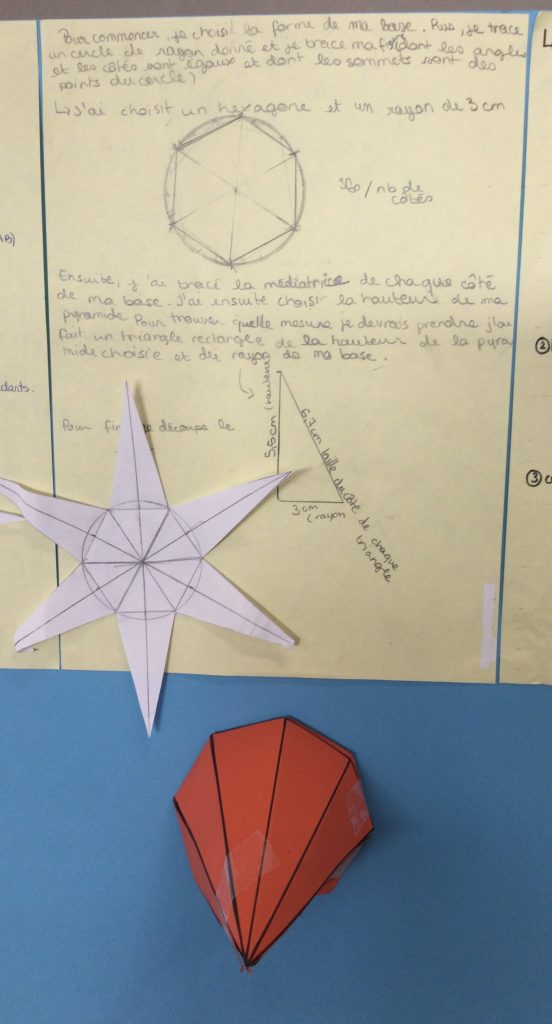 Pour commencer, je choisi la forme de ma base. Puis, je trace
un cercle de rayon donné et je trace ma dont les angles
et les côtés sont égaux et dont les sommets sont des
points du cercle)
↳ J'ai choisit un hexagone et un rayon de 3 cm
360 / nb de
côtés
Ensuite, j'ai tracé la médiatrice de chaque côté
de ma base. J'ai ensuite choisi la hauteur de ma
pyramide Pour trouver quelle mesure je devrais prendre j'ai
fait un triangle rectangle de la hauteur de la pyra
mide choisie et du rayon de ma base.
5,5cm (hauteur)
6,7cm taille du côté de chaque
triangle
3cm
(rayon
Pour découpe le
dants.
L
②
③